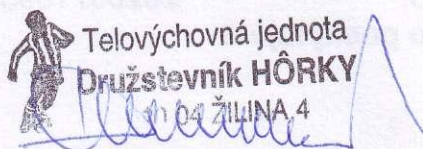 Telovýchovná jednota
Družstevník HÔRKY
04 ŽILINA 4